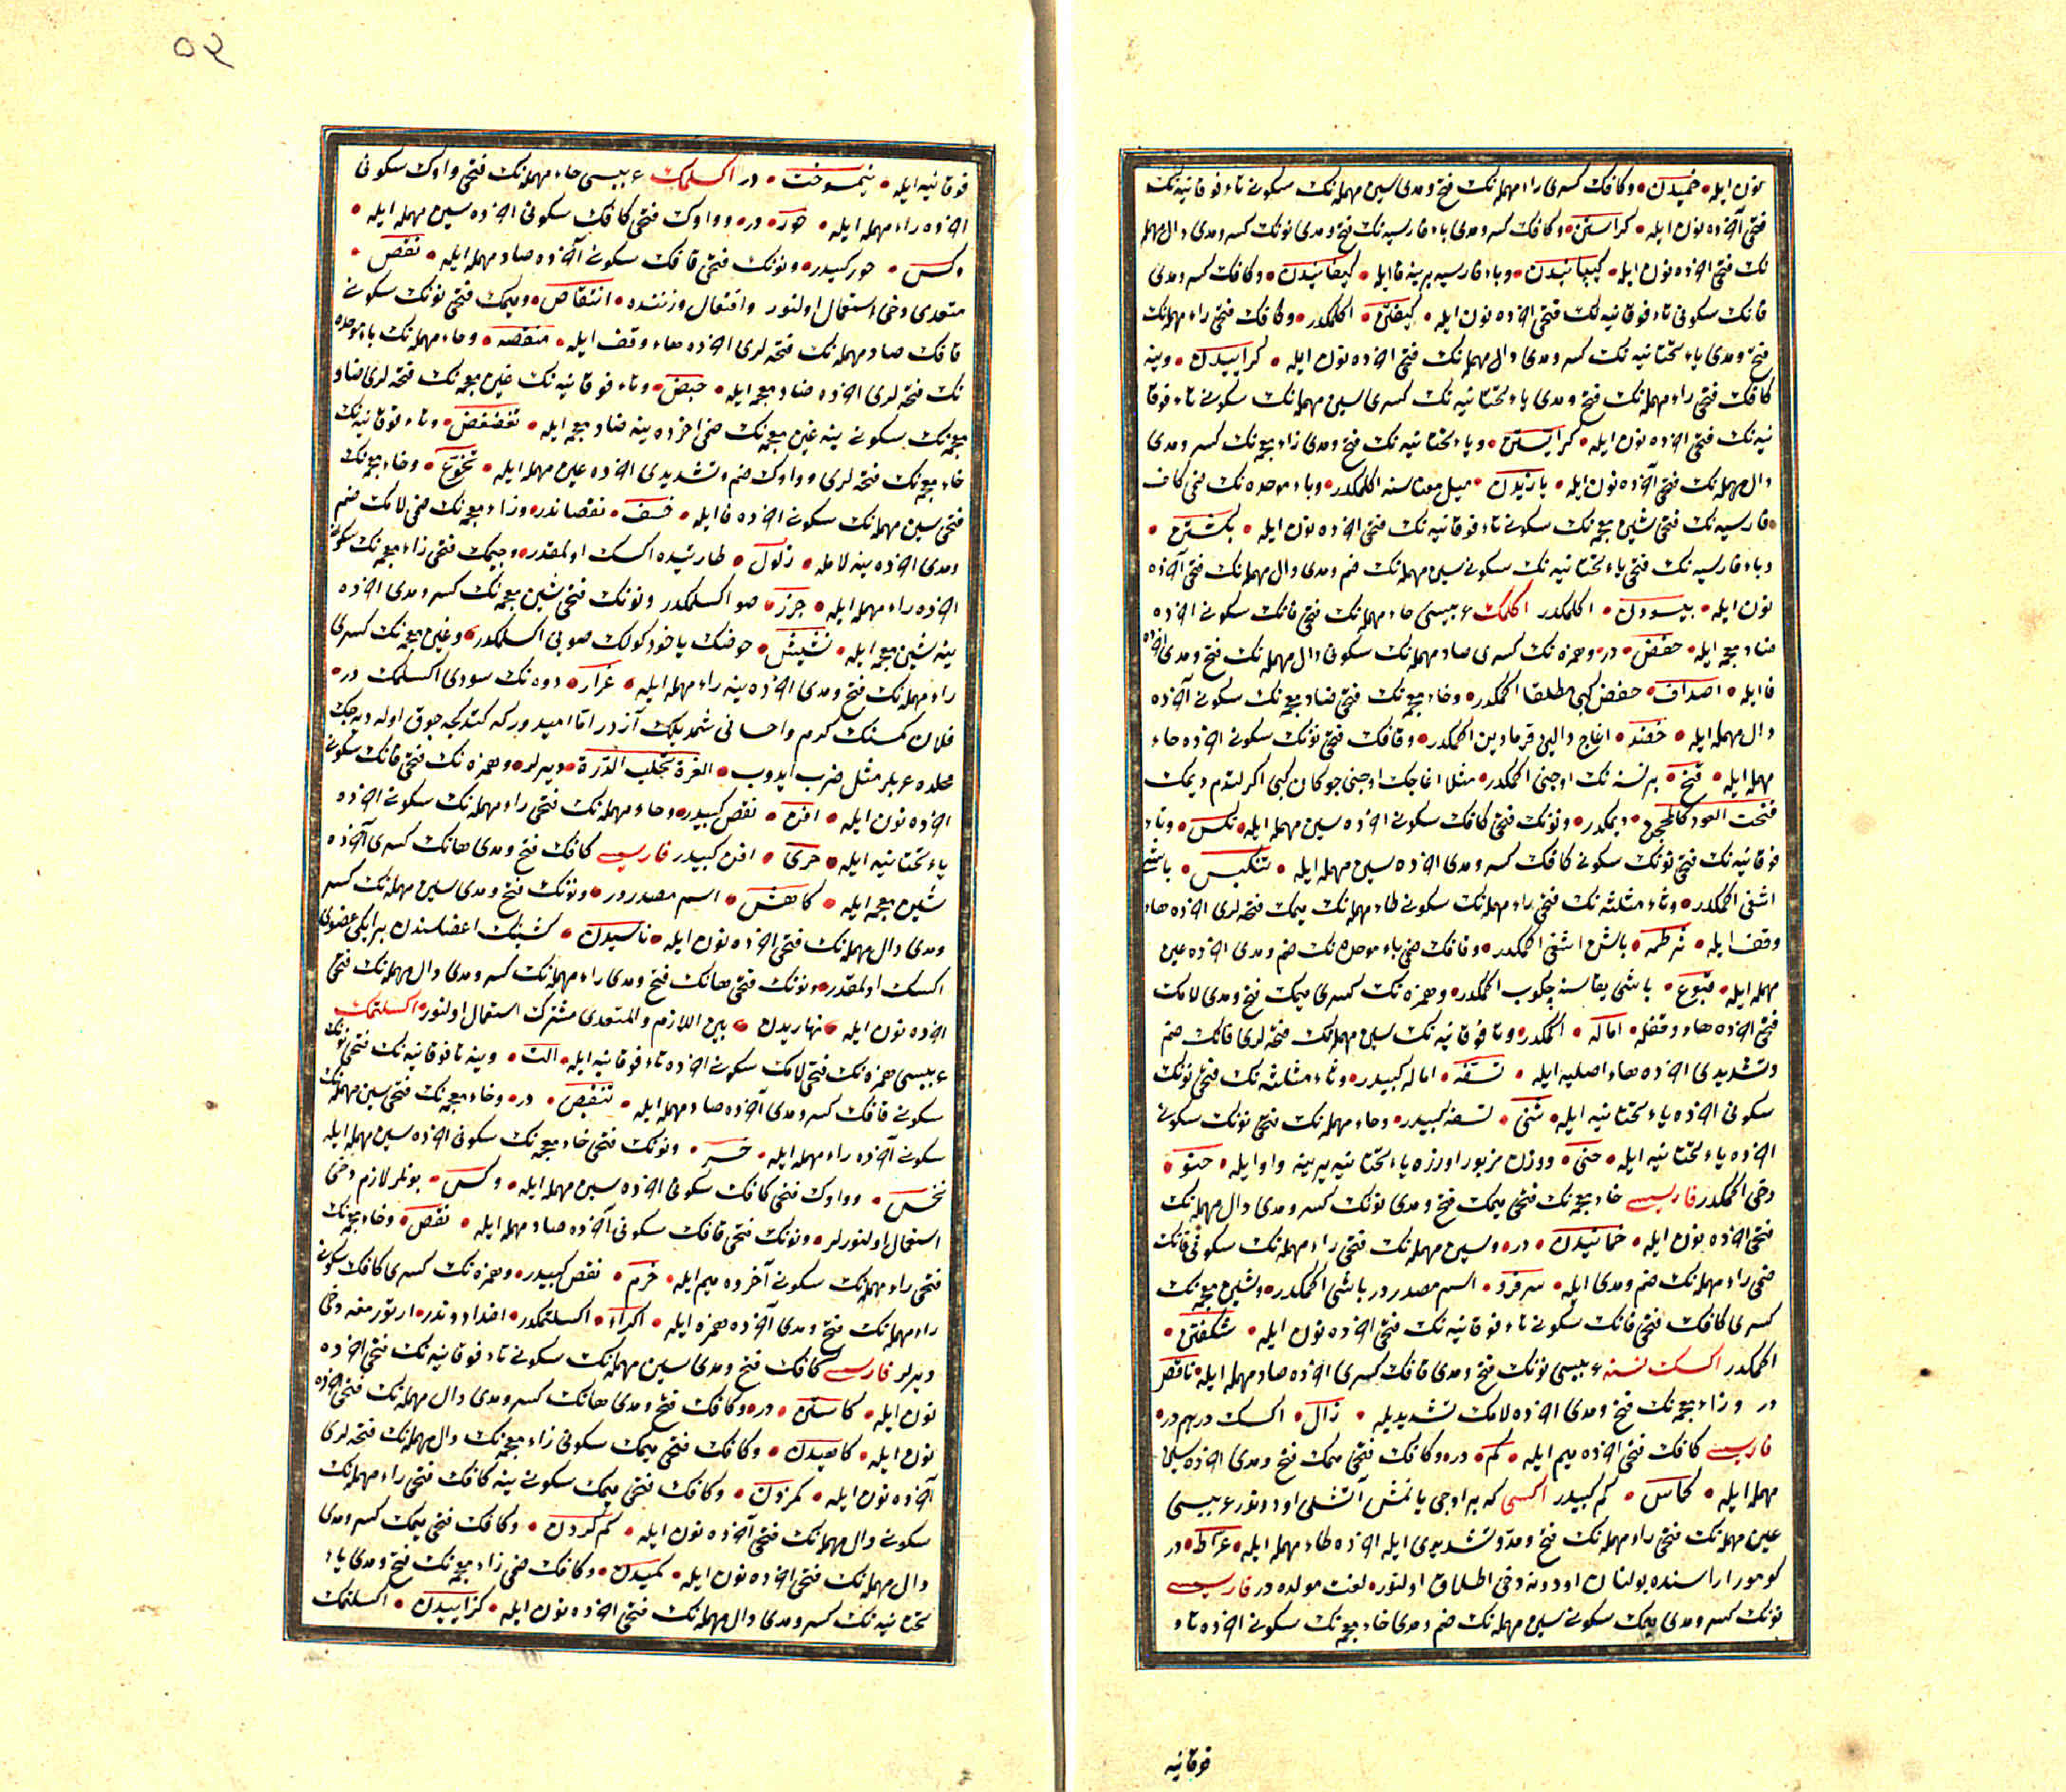 نون ایله خمیدن وکافک کسری راء مهمله نک فتح و مدی سین مهمله نک سکونی تاء فوقانیه نک
فتحی آخرده نون ایله کراستن وکافک کسر و مدی باء فارسیه نک فتح و مدی نونک کسر و مدی دال مهمله
نک فتحی آخرده نون ایله کیپانیدن وباء فارسیه یرینه فا ایله کیفانیدن وکافک کسر و مدی
فانک سکونی تاء فوقانیه نک فتحی آخرده نون ایله کیفتن اکلمکدر وکافک فتحی راء مهمله نک
فتح و مدی یاء تحتانیه نک کسر و مدی دال مهمله نک فتحی آخرده نون ایله کراییدن وینه
کافک فتحی راء مهمله نک فتح و مدی یاء تحتانیه نک کسری سین مهمله نک سکونی تاء فوقا
نیه نک فتحی آخرده نون ایله کرایستن ویاء تحتانیه نک فتح و مدی زاء معجمه نک کسر و مدی
دال مهمله نک فتحی آخرده نون ایله یازیدن میل معناسنه اکلمکدر وباء موحده نک ضمی کاف
فارسیه نک فتحی شین معجمه نک سکونی تاء فوقانیه نک فتحی آخرده نون ایله بکشتن
وباء فارسیه نک فتحی یاء تحتانیه نک سکونی سین مهمله نک ضم و مدی دال مهمله نک فتحی آخرده
نون ایله پیسودن اکلمکدر اکلمک عربیسی حاء مهمله نک فتحی فانک سکونی آخرده
ضاد معجمه ایله حفض در وهمزه نک کسری صاد مهمله نک سکونی دال مهمله نک فتح و مدی آخرده
فا ایله اصداف حفض کبی مطلقا اکمکدر وخاء معجمه نک فتحی ضاد معجمه نک سکونی آخرده
دال مهمله ایله خضد اغاج دالینی قرمادین اکمکدر وقافک فتحی نونک سکونی آخرده حاء
مهمله ایله قنح بر نسنه نک اوجنی اکمکدر مثلا اغاجک اوجنی جوکان کبی اکرلتدم دیمک
قنحت العود کالمحجن دیمکدر ونونک فتحی کافک سکونی آخرده سین مهمله ایله نکس وتاء
فوقانیه نک فتحی نونک سکونی کافک کسر و مدی آخرده سین مهمله ایله تنکیس باشی
اشغی اکمکدر وثاء مثلثه نک فتحی راء مهمله نک سکونی طاء مهمله نک میمک فتحه لری آخرده هاء
وقف ایله ثرطمه باشن اشغی اکمکدر وقافک ضمی باء موحده نک ضم و مدی آخرده عین
مهمله ایله قبوع باشی یقاسنه چکوب اکمکدر وهمزه نک کسری میمک فتح و مدی لامک
فتحی آخرده هاء وقفله اماله اکمکدر وتا فوقانیه نک سین مهمله نک فتحه لری فانک ضم
وتشدیدی آخرده هاء اصلیه ایله تسفه اماله کبیدر وثاء مثلثه نک فتحی نونک
سکونی آخرده یاء تحتانیه ایله ثنی تسفه کبیدر وحاء مهمله نک فتحی نونک سکونی
آخرده یاء تحتانیه ایله حنی ووزن مزبور اوزره یاء تحتانیه یرینه واو ایله حنو
دخی اکمکدر فارسیسی خاء معجمه نک فتحی میمک فتح و مدی نونک کسر و مدی دال مهمله نک
فتحی آخرده نون ایله خمانیدن در وسین مهمله نک فتحی راء مهمله نک سکونی فانک
ضمی راء مهمله نک ضم و مدی ایله سرفرو اسم مصدردر باشی اکمکدر وشین معجمه نک
کسری کافک فتحی فانک سکونی تاء فوقانیه نک فتحی آخرده نون ایله شکفتن
اکمکدر اکسک نسنه عربیسی نونک فتح و مدی قافک کسری آخرده صاد مهمله ایله ناقص
در وزاء معجمه نک فتح و مدی آخرده لامک تشدیدیله زال اکسک درهمدر
فارسیسی کافک فتحی آخرده میم ایله کم در وکافک فتحی میمک فتح و مدی آخرده سین
مهمله ایله کماس کم کبیدر اکسی که بر اوجی یانمش آتشلی اودوندر عربیسی
عین مهمله نک فتحی راء مهمله نک فتح و مد و تشدیدی ایله آخرده طاء مهمله ایله عراط در
کومور اراسنده بولنان اودونه دخی اطلاق اولنور لغت مولده در فارسیسی
نونک کسر و مدی میمک سکونی سین مهمله نک ضم و مدی خاء معجمه نک سکونی آخرده تاء
فوقانیه
٥٢
فوقانیه ایله نیمسوخت در اکسلمک عربیسی حاء مهمله نک فتحی واوک سکونی
آخرده راء مهمله ایله حور در وواوک فتحی کافک سکونی آخرده سین مهمله ایله
وکس حور کبیدر ونونک فتحی قافک سکونی آخرده صاد مهمله ایله نقص
متعدی دخی استعمال اولنور وافتعال وزننده انتقاص ومیمک فتحی نونک سکونی
قافک صاد مهمله نک فتحه لری آخرده هاء وقف ایله منقصه وحاء مهمله نک باء موحده
نک فتحه لری آخرده ضاد معجمه ایله حبض وتاء فوقانیه نک غین معجمه نک فتحه لری ضاد
معجمه نک سکونی ینه غین معجمه نک ضمی آخرده ینه ضاد معجمه ایله تغضغض وتاء فوقانیه نک
خاء معجمه نک فتحه لری وواوک ضم و تشدیدی آخرده عین مهمله ایله تخوع وخاء معجمه نک
فتحی سین مهمله نک سکونی آخرده فا ایله خسف نقصاندر وزاء معجمه نک ضمی لامک ضم
و مدی آخرده ینه لامله زلول طارتیده اکسک اولمقدر وجیمک فتحی زاء معجمه نک سکونی
آخرده راء مهمله ایله جزر صو اکسلمکدر ونونک فتحی شین معجمه نک کسر و مدی آخرده
ینه شین معجمه ایله نشیش حوضک یاخود کولک صویی اکسلمکدر وغین معجمه نک کسری
راء مهمله نک فتح و مدی آخرده ینه راء مهمله ایله غرار دوه نک سودی اکسلمک در
فلان کمسنک کرم واحسانی شمدیلک آزدر اما امیددر که کتدکجه چوق اوله دیه جک
محلده عربلر مثل ضرب ایدوب الغرة تجلب الدرة دیرلر وهمزه نک فتحی فانک سکونی
آخرده نون ایله افن نقص کبیدر وحاء مهمله نک فتحی راء مهمله نک سکونی آخرده
یاء تحتانیه ایله حری افن کبیدر فارسیسی کافک فتح و مدی هانک کسری آخرده
شین معجمه ایله کاهش اسم مصدردر ونونک فتح و مدی سین مهمله نک کسر
و مدی دال مهمله نک فتحی آخرده نون ایله ناسیدن کشینک اعضاسندن بر ایکی عضوی
اکسک اولمقدر ونونک فتحی هانک فتح و مدی راء مهمله نک کسر و مدی دال مهمله نک فتحی
آخرده نون ایله نهاریدن بین اللازم والمتعدی مشترک استعمال اولنور اکسلتمک
عربیسی همزه نک فتحی لامک سکونی آخرده تاء فوقانیه ایله الت وینه تا فوقانیه نک فتحی نونک
سکونی قافک کسر و مدی آخرده صاد مهمله ایله تنقیص در وخاء معجمه نک فتحی سین مهمله نک
سکونی آخرده راء مهمله ایله خسر ونونک فتحی خاء معجمه نک سکونی آخرده سین مهمله ایله
نخس وواوک فتحی کافک سکونی آخرده سین مهمله ایله وکس بونلر لازم دخی
استعمال اولنورلر ونونک فتحی قافک سکونی آخرده صاد مهمله ایله نقص وخاء معجمه نک
فتحی راء مهمله نک سکونی آخرده میم ایله خرم نقص کبیدر وهمزه نک کسری کافک سکونی
راء مهمله نک فتح و مدی آخرده همزه ایله اکراء اکسلتمکدر اضداددندر ارتورمغه دخی
دیرلر فارسیسی کافک فتح و مدی سین مهمله نک سکونی تاء فوقانیه نک فتحی آخرده
نون ایله کاستن در وکافک فتح و مدی هانک کسر و مدی دال مهمله نک فتحی آخرده
نون ایله کاهیدن وکافک فتحی میمک سکونی زاء معجمه نک دال مهمله نک فتحه لری
آخرده نون ایله کمزدن وکافک فتحی میمک سکونی ینه کافک فتحی راء مهمله نک
سکونی دال مهمله نک فتحی آخرده نون ایله کم کردن وکافک فتحی میمک کسر و مدی
دال مهمله نک فتحی آخرده نون ایله کمیدن وکافک ضمی زاء معجمه نک فتح و مدی یاء
تحتانیه نک کسر و مدی دال مهمله نک فتحی آخرده نون ایله کزاییدن اکسلتمک